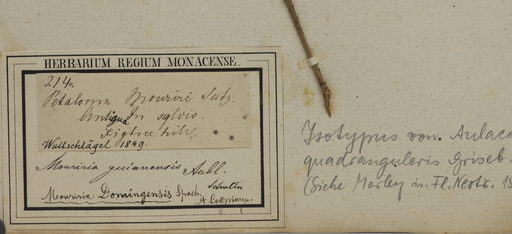 HERBARIUM REGIUM MONACENSE.
214.
Petaloma Mouriri Sw.
Antigua In sylvis.
Figtree hill.
Wullschlägel 1849.
Mouriria guianensis Aubl.
Mouriria Domingensis Spach.
A. Cogniaux.
Isotypus von Aulaco
quadrangularis Griseb.
(Siehe Morley in Fl. Neotr. 15